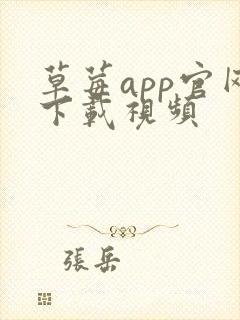 草莓app官网
下載視頻
張岳